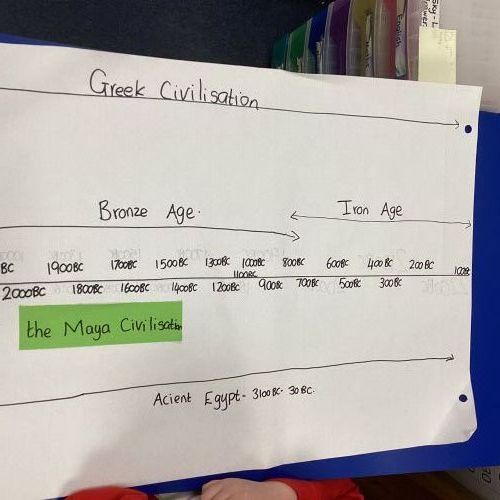 Greek Civilisation
Bronze Age.
Iron Age
BC 1900BC 1700BC 1500BC 1300BC 1000BC 800BC 600BC 400BC 200BC 100BC
1100BC
2000BC 1800BC 1600BC 1400BC 1200BC 900BC 700BC 500BC 300BC
the Maya Civilisation
Acient Egypt - 3100BC - 30BC.
English